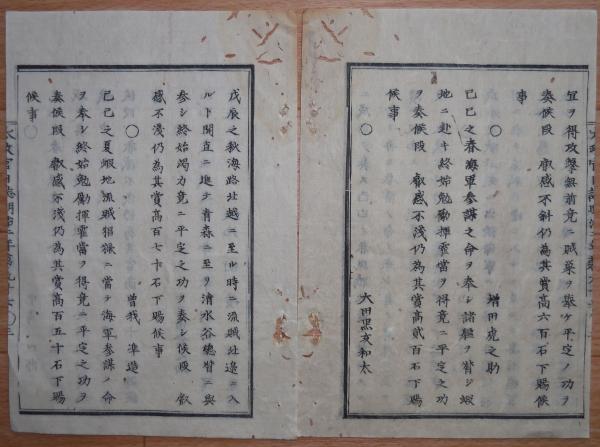 宜ヲ得攻撃無前竟ニ賊巣ヲ擧ケ平定ノ功ヲ
奏候段 叡感不斜仍為其賞高六百石下賜候
事
○ 増田虎之助
己巳之春海軍參謀之命ヲ奉シ諸艦ヲ督シ蝦
地ニ赴キ終始勉勤揮霍當ヲ得竟ニ平定之功
ヲ奏候段 叡感不淺仍為其賞高貳百石下賜
候事
○ 大田黒亥和太
戊辰之秋海路北越ニ至ル時ニ流賊北邊ニ入
ルト聞直ニ進テ青森ニ至ヲ清水谷總督ニ與
參シ終始竭力竟ニ平定之功ヲ奏シ候段 叡
感不淺仍為其賞高百七十石下賜候事
○ 曾我 準造
己巳之夏蝦地流賊猖獗ニ當テ海軍參謀ノ命
ヲ奉シ終始勉勵揮霍當ヲ得竟ニ平定之功ヲ
奏候段 叡感不淺仍為其賞高百五十石下賜
候事 ○